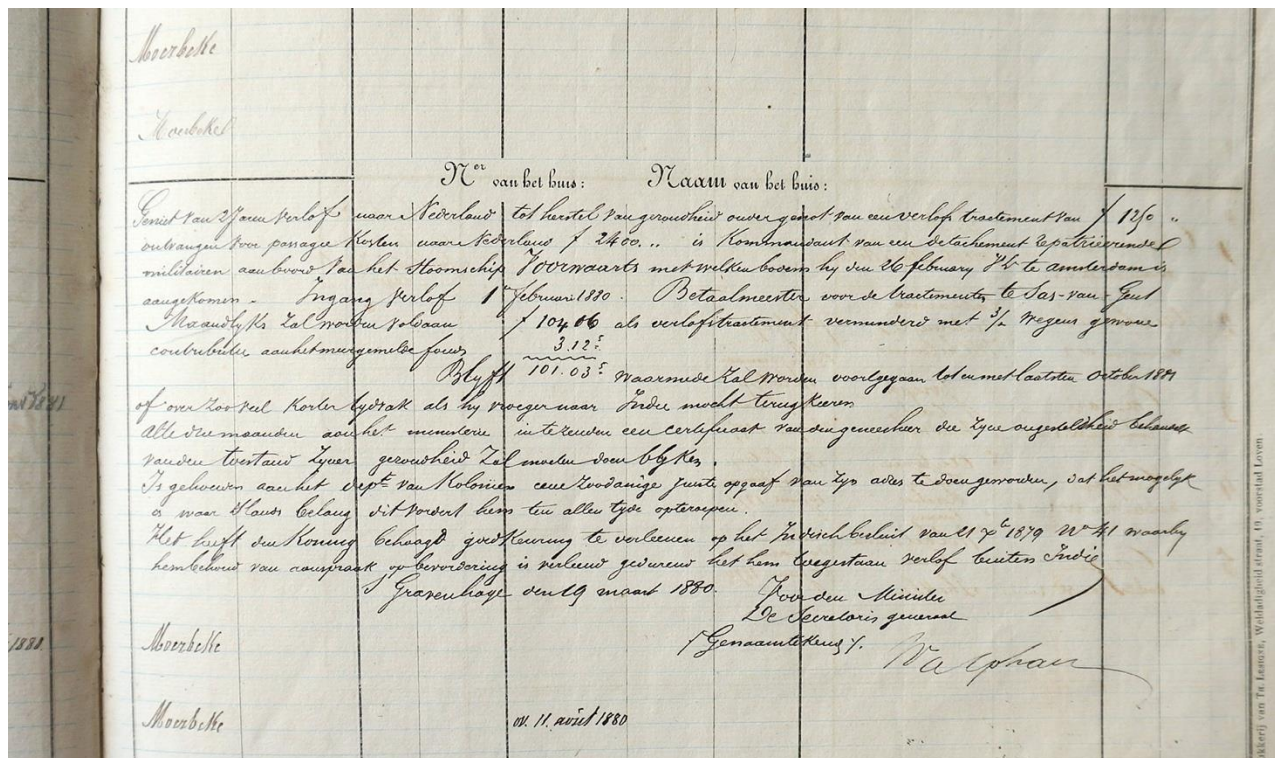 Moerbeke
Moerbeke
Nor van het huis: Naam van het huis:
Geniet van 2 Jaren verlof naar Nederland tot herstel van gezondheid onder genot van een verlofs tractement van ƒ 1250 „
ontvangen voor passagie Kosten naar Nederland ƒ 2400 „ is Kommandant van een detachement repatrieerende
militairen aan boord van het Stoomschip Voorwaarts met welken bodem hy den 26 february te amsterdam is
aangekomen. Ingang verlof 1 februari 1880. Betaalmeester voor de tractementen te Sas-van-Gent
Maandlyks zal worden voldaan ƒ 104.06 als verlofstractement verminderd met 3/% wegens gewone
contributie aan het fonds 3.12⁵
Blyft 101.03⁵ waarmede zal worden voortgegaan tot en met laatsten October 1881
of over zoo veel korter tydvak als hy vroeger naar Indie mocht terugkeeren
Alle drie maanden aan het ministerie in te zenden een certificaat van den geneesheer die zyne ongesteldheid behandelt
van den toestand zyner gezondheid zal moeten doen blyken.
Is gehouden aan het dept van Kolonien eene zoodanige juiste opgaaf van zyn adres te doen geworden, dat het mogelyk
is waar 's Lands belang dit vordert hem ten allen tyde opteroepen.
Het heeft den Koning behaagd goedkeuring te verleenen op het Indisch besluit van 21 Xbr 1879 No 41 waarby
hem behoud van aanspraak op bevordering is verleend gedurend het hem toegestaan verlof buiten Indie
S Gravenhage den 19 maart 1880.
Voor den Minister
De Secretaris generaal
Moerbeke /Genaamtekend/.
Moerbeke ov. 11 août 1880
1881
1880.
kkerij van Th. Lefever, Weldadigheid straat, 19, voorstad Loven.